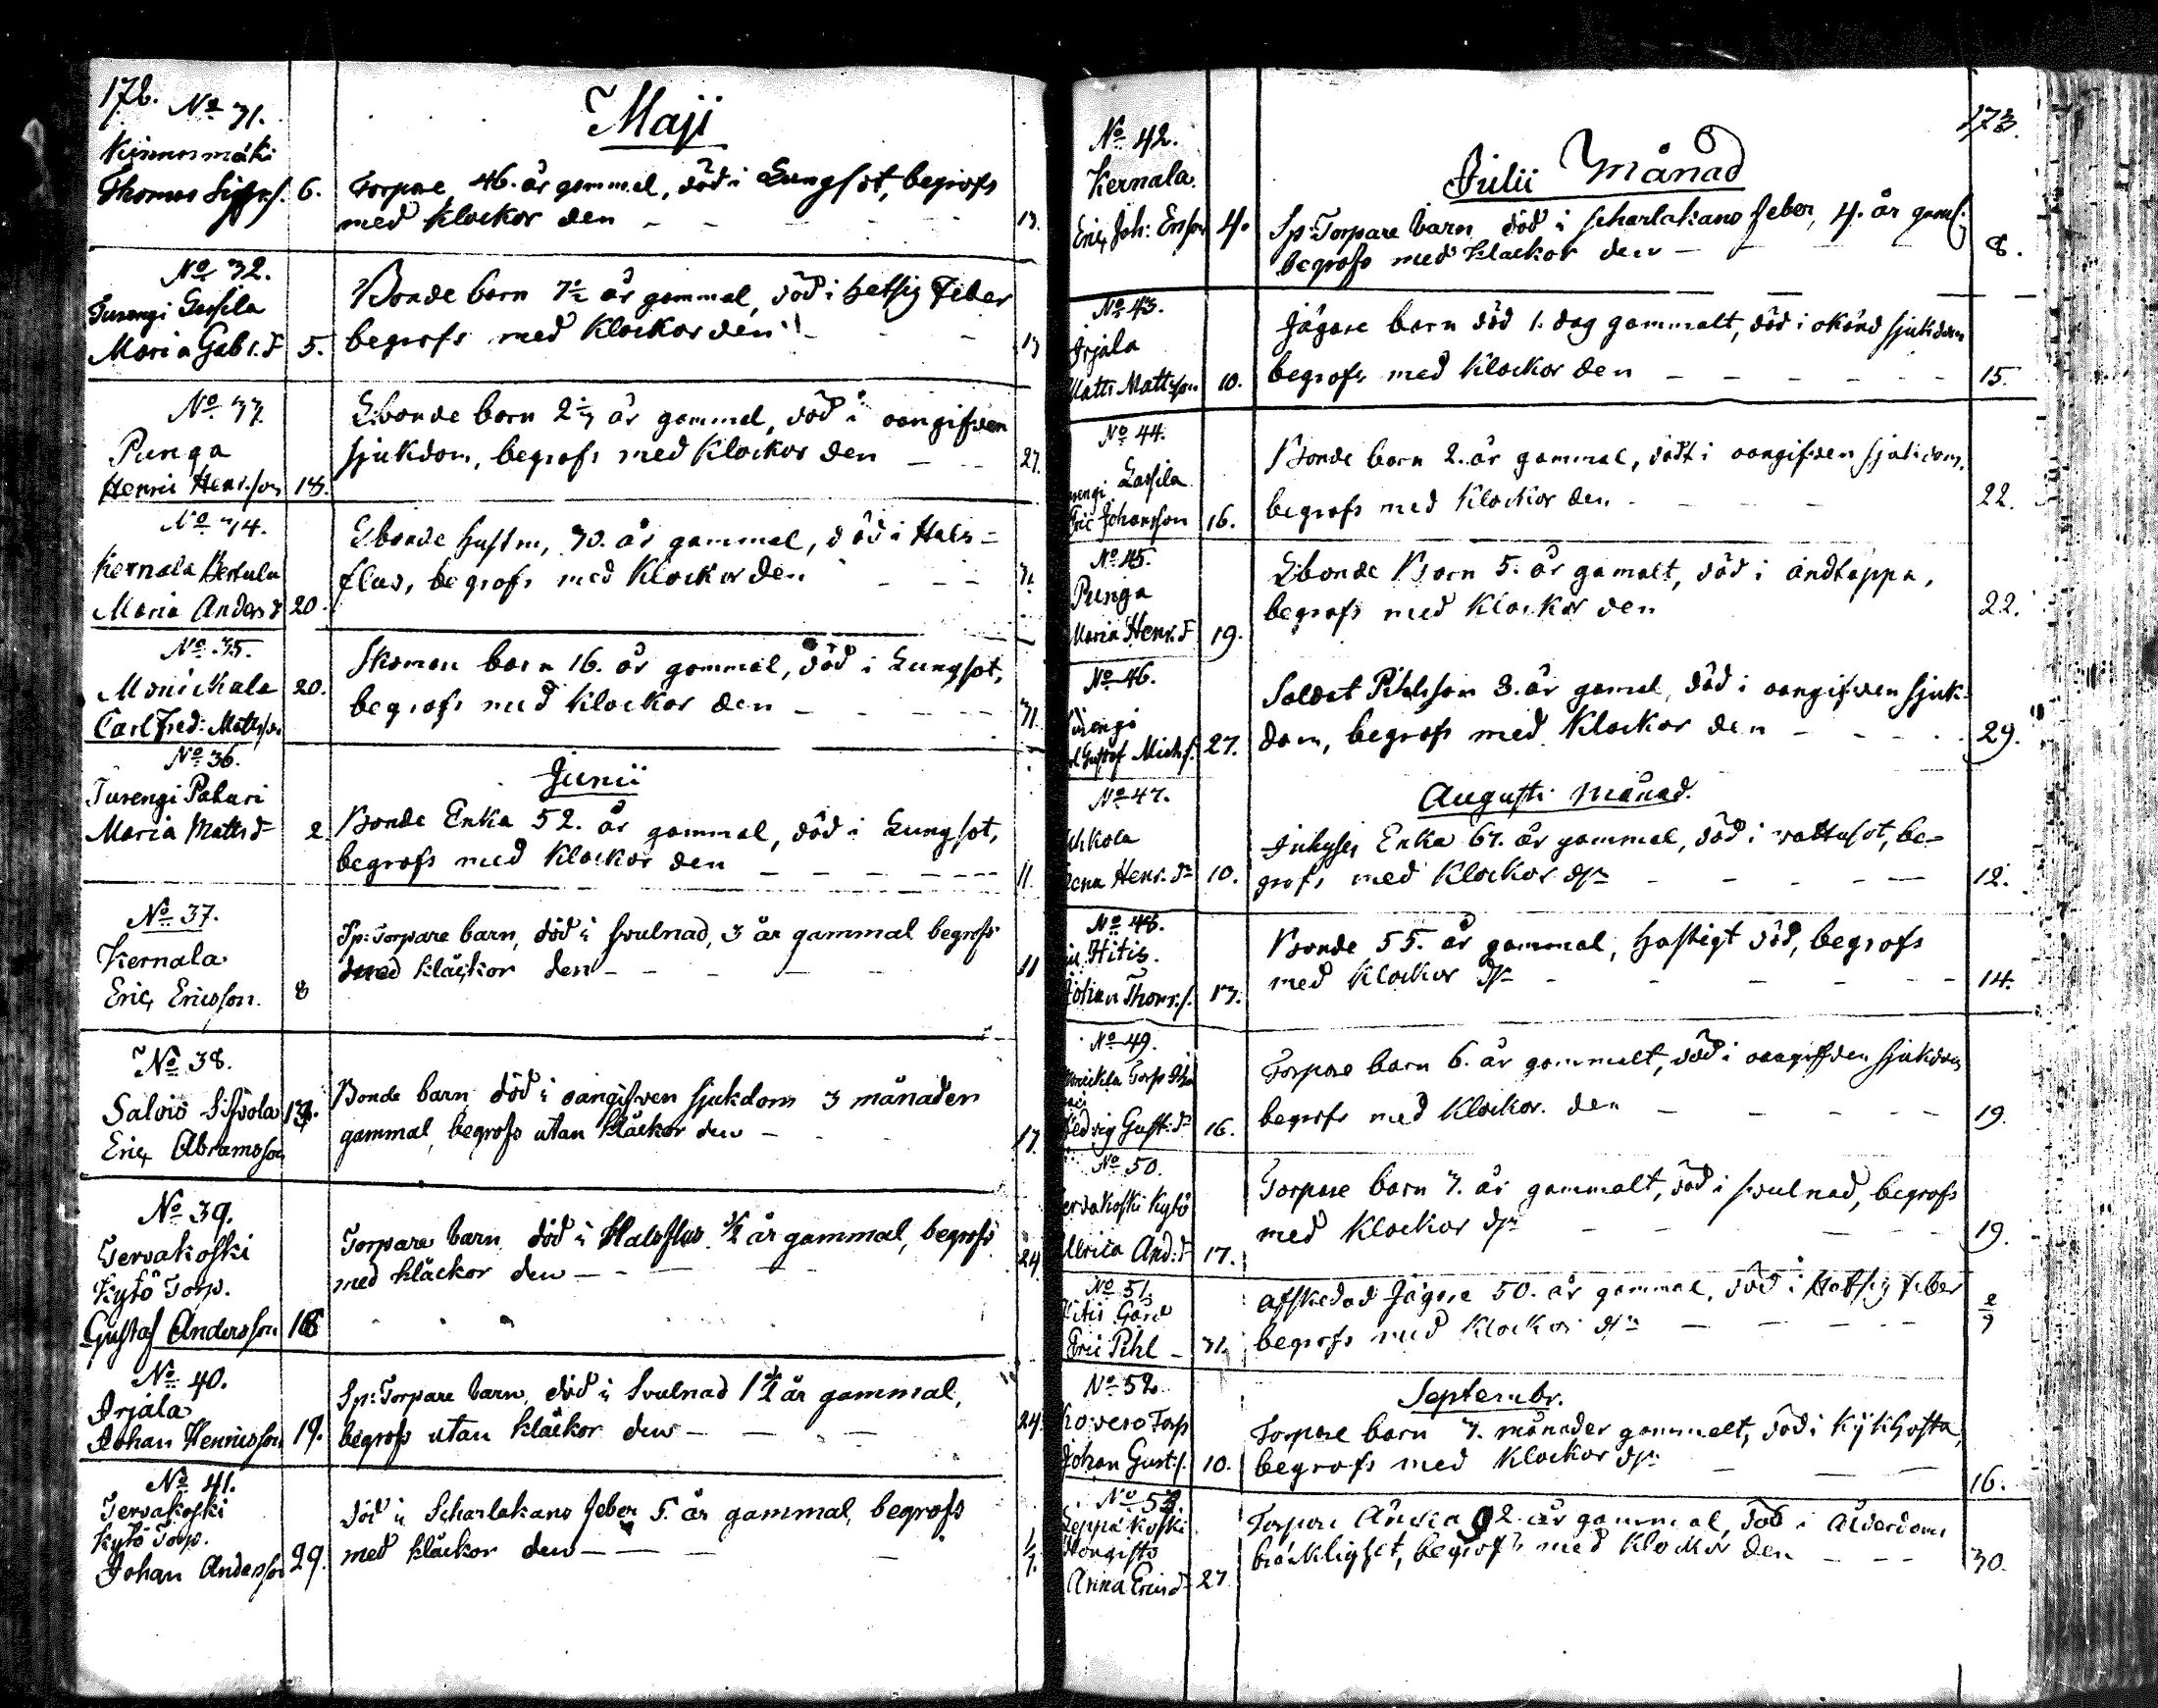 172.
Maji
No 31.
Kinnosmäki
Thomas Sigfr.s. 6. Torpare 46. år gammal, död i Lungsot, begrofs
med Klockor den - - - 13.
No 32.
Turengi Lassila
Maria Gabr.d 5.
Bonde barn 7½ år gammal, död i hetsig Feber
begrofs med Klockor den - - 13
No 33.
Punga
Henric Henr.son 13.
Lbonde barn 2⅓ år gammal, död i oangifven
sjukdom, begrofs med Klockor den - - 27.
No 34.
Kernala Bertula
Maria Anders d 20.
Lbonde hustru, 30. år gammal, död i Hals=
fluss, begrofs med Klockor den - - - 31.
No 35.
Monickala
Carl Fred: Mattsson 20.
Skomon barn 16. år gammal, död i Lungsot,
begrofs med Klockor den - - - - 31
No 36.
Junii
Turengi Pakari
Maria Matts d 2.
Bonde Enka 52. år gammal, död i Lungsot,
begrofs med Klockor den - - - - - 11.
No 37.
Kernala
Eric Ericsson. 8
Sp: Torpare barn, död i svulnad, 3 år gammal begrofs
med kläckor den - - - - 11
No 38.
Salois Sifvola
Eric Abramsson 13.
Bonde barn död i oangifven sjukdom 3 månader
gammal, begrofs utan kläckor den - - 17.
No 39.
Tervakoski
Kytö Torp.
Gustaf Andersson 18
Torpare barn död i Halsfluss ½ år gammal, begrofs
med kläckor den - - - - 24
No 40.
Irjala
Johan Henricsson 19.
Sp: Torpare barn, död i Svulnad 1½ år gammal,
begrofs utan kläckor den - - - - 24.
No 41.
Tervakoski
Kytö Torp.
Johan Andersson 29.
död i Scharlakans feber 5. år gammal, begrofs
med kläckor den - - - - 1/7.
173.
Julii Månad
No 42.
Kernala
Eric Joh: Ersson 4.
Sp: Torpare barn död i scharlakans feber, 4. år gam:
begrofs med klackor den - - 8.
No 43.
Irjala
Matts Mattsson 10.
Jägare barn död 1. dag gammalt, död i okänd sjukdom
begrofs med Klockor den - - - - - - 15.
No 44.
Lassila
Eric Johansson 16.
Bonde barn 2. år gammal, dödt i oangifven sjukdom,
begrofs med Klockor den - - - 22.
No 45.
Punga
Maria Henr.d 19.
Lbonde Barn 5. år gamalt, död i andtäppa,
begrofs med Klockor den 22.
No 46.
Gustaf Mich.s. 27.
Soldat Pihlsson 3. år gamal, död i oangifven sjuk-
dom, begrofs med Klockor den - - - - 29.
Augusti Månad.
No 47.
Lena Henr. d 10.
Inhyses Enka 67. år gammal, död i vattusot, be-
grofs med Klockor d - - - - 12.
No 48.
Hitis.
Johan Thoms.s. 13.
Bonde 55. år gammal, hastigt död, begrofs
med Klockor d - - - - - 14.
No 49.
Hedvig Gust: d 16.
Torpare barn 6. år gammalt, död i oangifven sjukdom
begrofs med Klockor. den - - - - 19.
No 50.
Tervakoski Kytö
Ulrica And:d 17.
Torpare barn 7. år gammalt, död i svulnad, begrofs
med Klockor d - - - 19.
No 51.
Hitis Gård
Eric Pihl - 31.
Afskedad Jägare 50. år gammal, död i Hetsig feber
begrofs med Klockor d - - - - - 2/9
Septembr.
No 52.
Torp
Johan Gust:s. 10.
Torpare barn 7. månader gammalt, död i Kijkhosta,
begrofs med Klockor d - - - 16.
No 53.
Leppäkoski
Hongisto
Anna Erics d 27
Torpare Änka 92. år gammal, död i Ålderdoms
bräcklighet, begrofs med Klockor den - - - 30.